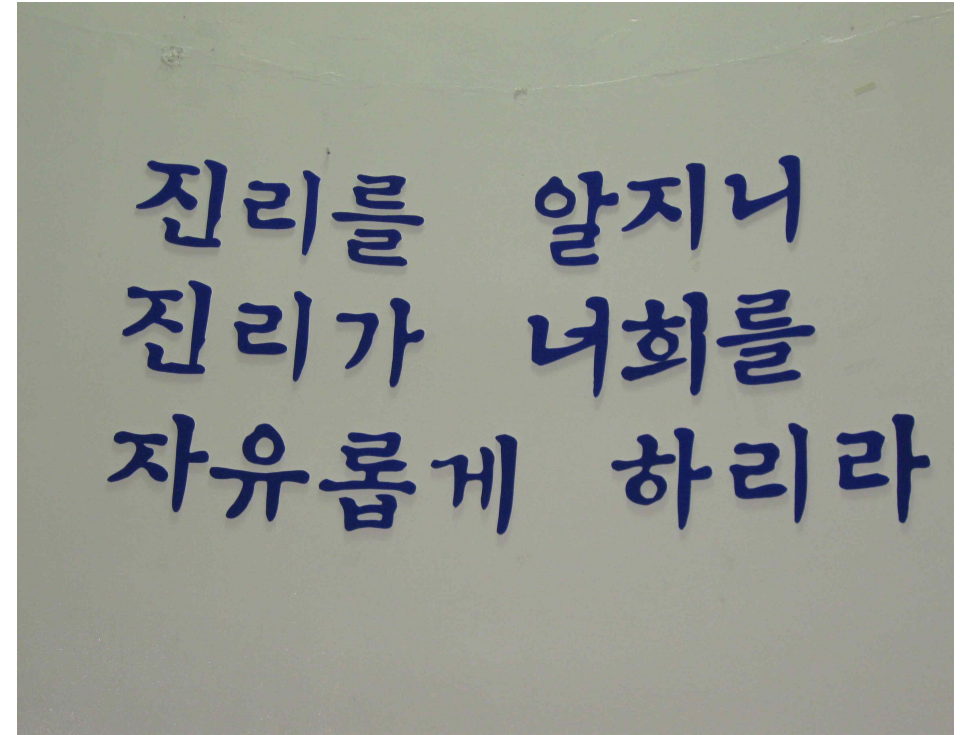 진리를 알지니
진리가 너희를
자유롭게 하리라